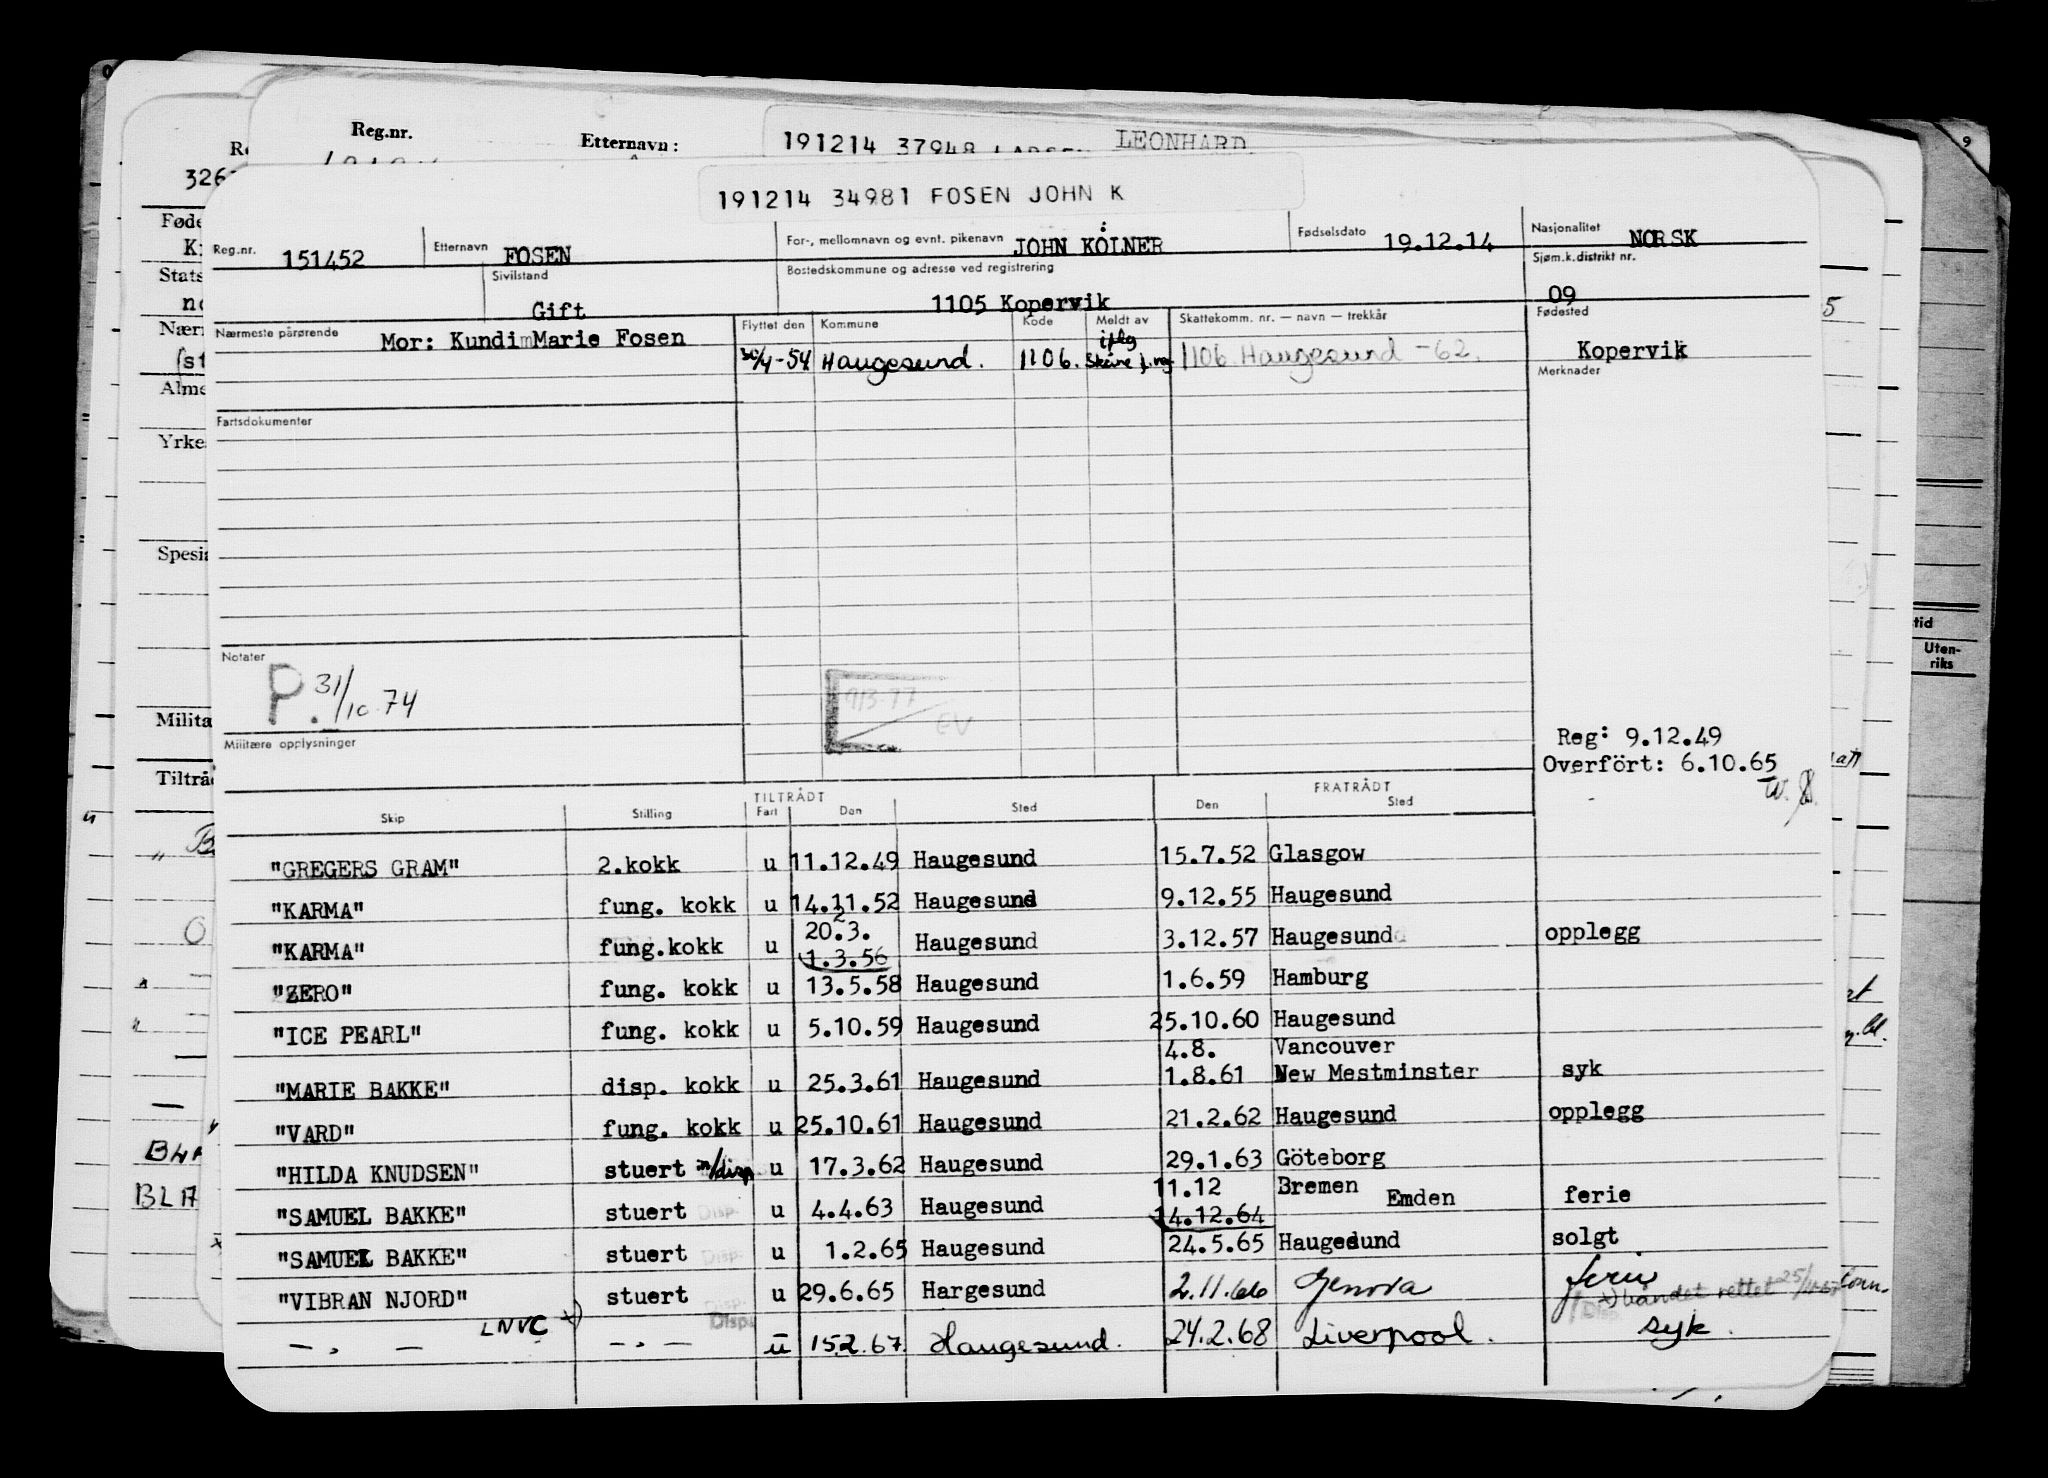 Reg.nr. Etternavn: 191214 37948 LARSEN LEONHARD
191214 34981 FOSEN JOHN K
Reg.nr. 151452 Etternavn FOSEN For-, mellomnavn og evnt. pikenavn JOHN KÖLNER Fødselsdato 19.12.14 Nasjonalitet NORSK
Sivilstand Gift Bostedskommune og adresse ved registrering 1105 Kopervik Sjøm.k.distrikt nr. 09
Nærmeste pårørende Mor: Kundi Marie Fosen Flyttet den Kommune Kode Meldt av Skattekomm. nr. — navn — trekkår Fødested Kopervik
30/4-54 Haugesund. 1106. 1106 Haugesund -62.
Merknader
Fartsdokumenter
Notater
P. 31/10 74
Militære opplysninger
Reg: 9.12.49
Overfört: 6.10.65
TILTRÅDT FRATRÅDT
Skip Stilling Fart Den Sted Den Sted
"GREGERS GRAM" 2.kokk u 11.12.49 Haugesund 15.7.52 Glasgow
"KARMA" fung. kokk u 14.11.52 Haugesund 9.12.55 Haugesund
20.3.
"KARMA" fung.kokk u 1.3.56 Haugesund 3.12.57 Haugesund opplegg
"ZERO" fung. kokk u 13.5.58 Haugesund 1.6.59 Hamburg
"ICE PEARL" fung. kokk u 5.10.59 Haugesund 25.10.60 Haugesund
4.8. Vancouver
"MARIE BAKKE" disp. kokk u 25.3.61 Haugesund 1.8.61 New Mestminster syk
"VARD" fung. kokk u 25.10.61 Haugesund 21.2.62 Haugesund opplegg
"HILDA KNUDSEN" stuert m/disp u 17.3.62 Haugesund 29.1.63 Göteborg
11.12 Bremen
"SAMUEL BAKKE" stuert Disp. u 4.4.63 Haugesund 14.12.64 Emden ferie
"SAMUEL BAKKE" stuert Disp. u 1.2.65 Haugesund 24.5.65 Haugedund solgt
"VIBRAN NJORD" stuert Disp. u 29.6.65 Hargesund 2.11.66 Genova ferie
x) båndet rettet
— . — LNVC x) — . — Disp. u 15.2.67 Haugesund. 24.2.68 Liverpool. syk.